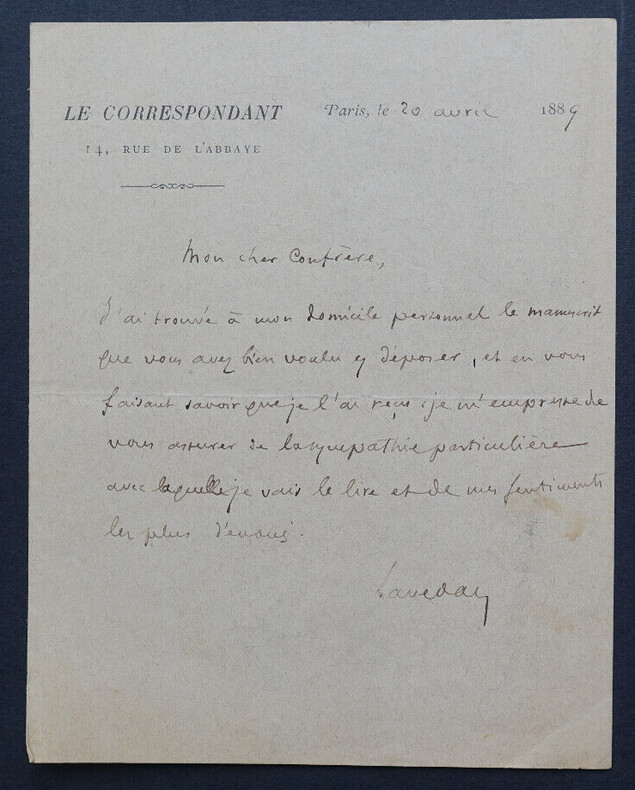 LE CORRESPONDANT
14, RUE DE L'ABBAYE
Paris, le 20 avril 1889
Mon cher Confrère,
J'ai trouvé à mon domicile personnel le manuscrit
que vous avez bien voulu y déposer, et en vous
faisant savoir que je l'ai reçu je m'empresse de
vous assurer de la sympathie particulière
avec laquelle je vais le lire et de mes sentiments
les plus dévoués.
Lavedan